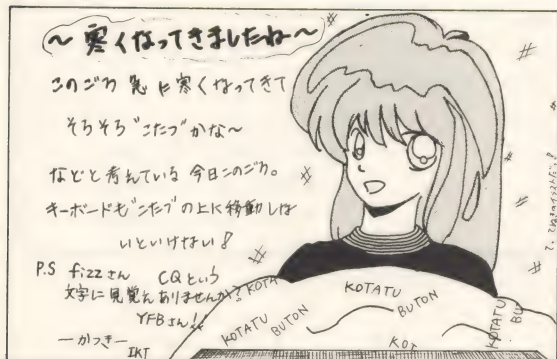 ～寒くなってきましたね～
このごろ 急に寒くなってきて
そろそろ"こたつ"かな～
などと考えている 今日このごろ。
キーボードも"こたつ"の上に移動しな
いといけない!
P.S fizzさん CQという
文字に見覚えありませんか?
YFBさん!!
—かつき—
IKT
KOTA
KOTATU
BUTON
KOTATU
BUTON
KOT
KOTATU
BUT